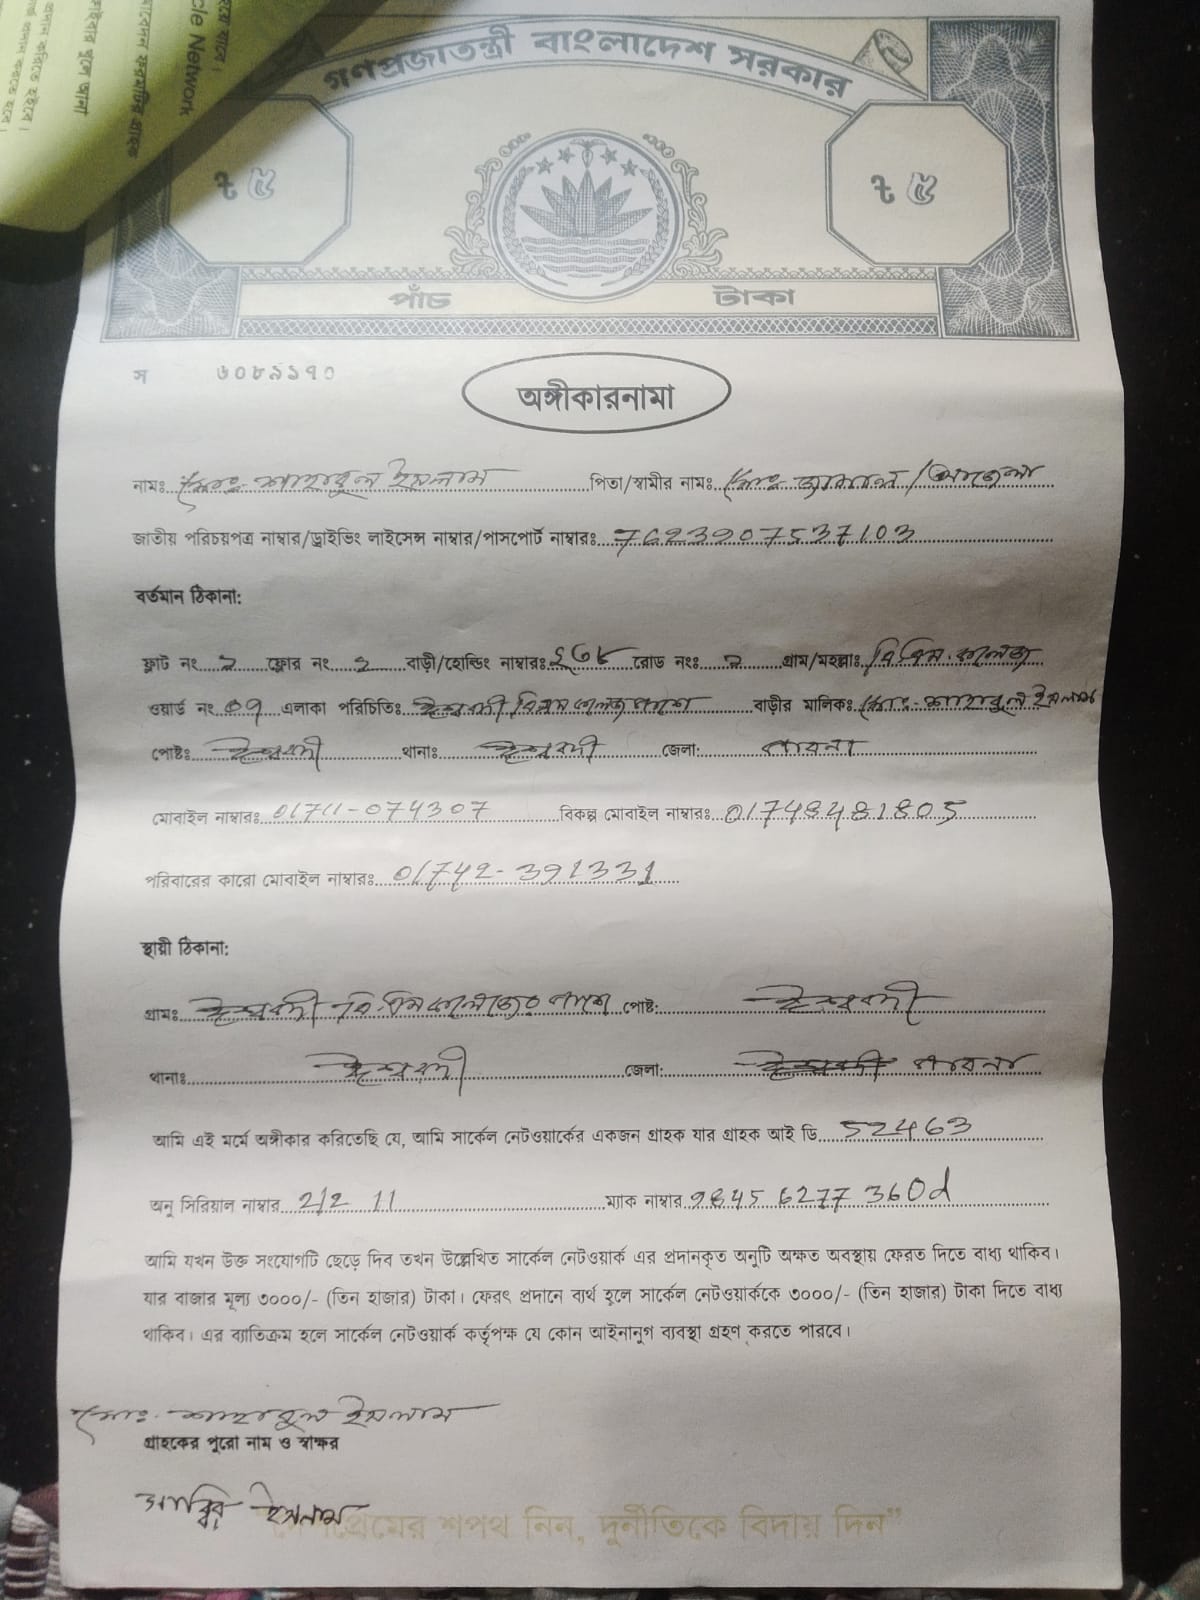 হবে।
cle Network
গণপ্রজাতন্ত্রী বাংলাদেশ সরকার
৳ ৫ ৳ ৫
পাঁচ টাকা
স ৬০৮৯১৭০
অঙ্গীকারনামা
নামঃ মোঃ শাহাবুল ইসলাম পিতা/স্বামীর নামঃ মোঃ
জাতীয় পরিচয়পত্র নাম্বার/ড্রাইভিং লাইসেন্স নাম্বার/পাসপোর্ট নাম্বারঃ 7623907537103
বর্তমান ঠিকানা:
ফ্লাট নং ফ্লোর নং বাড়ী/হোল্ডিং নাম্বারঃ রোড নংঃ গ্রাম/মহল্লাঃ
ওয়ার্ড নং ০৭ এলাকা পরিচিতিঃ ঈশ্বরদী বাড়ীর মালিকঃ মোঃ শাহাবুল ইসলাম
পোষ্টঃ ঈশ্বরদী থানাঃ ঈশ্বরদী জেলা: পাবনা
মোবাইল নাম্বারঃ 01711-074307 বিকল্প মোবাইল নাম্বারঃ
পরিবারের কারো মোবাইল নাম্বারঃ 01742-391331
স্থায়ী ঠিকানা:
গ্রামঃ ঈশ্বরদী কলেজের পাশে পোষ্ট: ঈশ্বরদী
থানাঃ ঈশ্বরদী জেলা: পাবনা
আমি এই মর্মে অঙ্গীকার করিতেছি যে, আমি সার্কেল নেটওয়ার্কের একজন গ্রাহক যার গ্রাহক আই ডি 52463
অনু সিরিয়াল নাম্বার 2/2 11 ম্যাক নাম্বার
আমি যখন উক্ত সংযোগটি ছেড়ে দিব তখন উল্লেখিত সার্কেল নেটওয়ার্ক এর প্রদানকৃত অনুটি অক্ষত অবস্থায় ফেরত দিতে বাধ্য থাকিব।
যার বাজার মূল্য ৩০০০/- (তিন হাজার) টাকা। ফেরৎ প্রদানে ব্যর্থ হলে সার্কেল নেটওয়ার্ককে ৩০০০/- (তিন হাজার) টাকা দিতে বাধ্য
থাকিব। এর ব্যাতিক্রম হলে সার্কেল নেটওয়ার্ক কর্তৃপক্ষ যে কোন আইনানুগ ব্যবস্থা গ্রহণ করতে পারবে।
মোঃ শাহাবুল ইসলাম
গ্রাহকের পুরো নাম ও স্বাক্ষর
ইসলাম
শপথ নিন, দুর্নীতিকে বিদায় দিন"